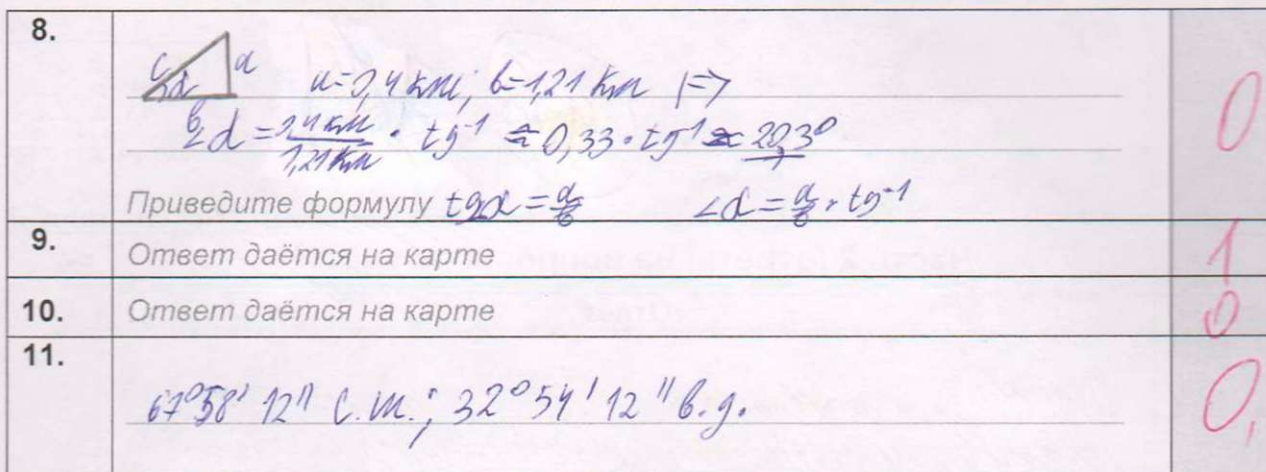 8.
c a
α
a=0,4 км; b=1,21 км |=>
b
∠α = 0,4 км / 1,21 км · tg⁻¹ ≈ 0,33 · tg⁻¹ ≈ 20,3°
Приведите формулу tgα = a/b ∠α = a/b · tg⁻¹
0
9. Ответ даётся на карте 1
10. Ответ даётся на карте 0
11.
67°58' 12'' с.ш.; 32°54' 12'' в.д. 0,